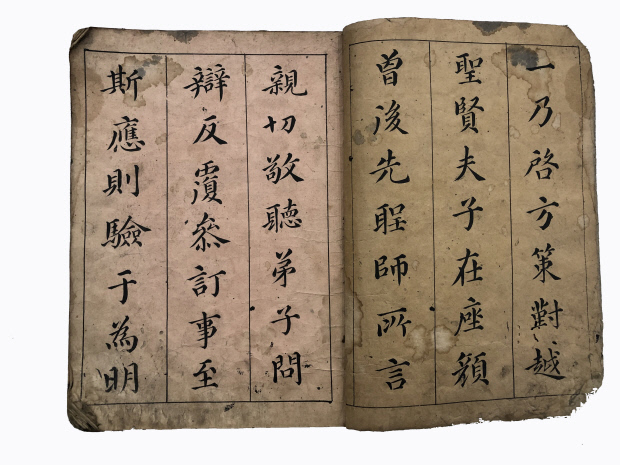 一乃啓方策對越
聖賢夫子在座顔
曾後先聖師所言
親切敬聽弟子問
辯反覆叅訂事至
斯應則驗于為明